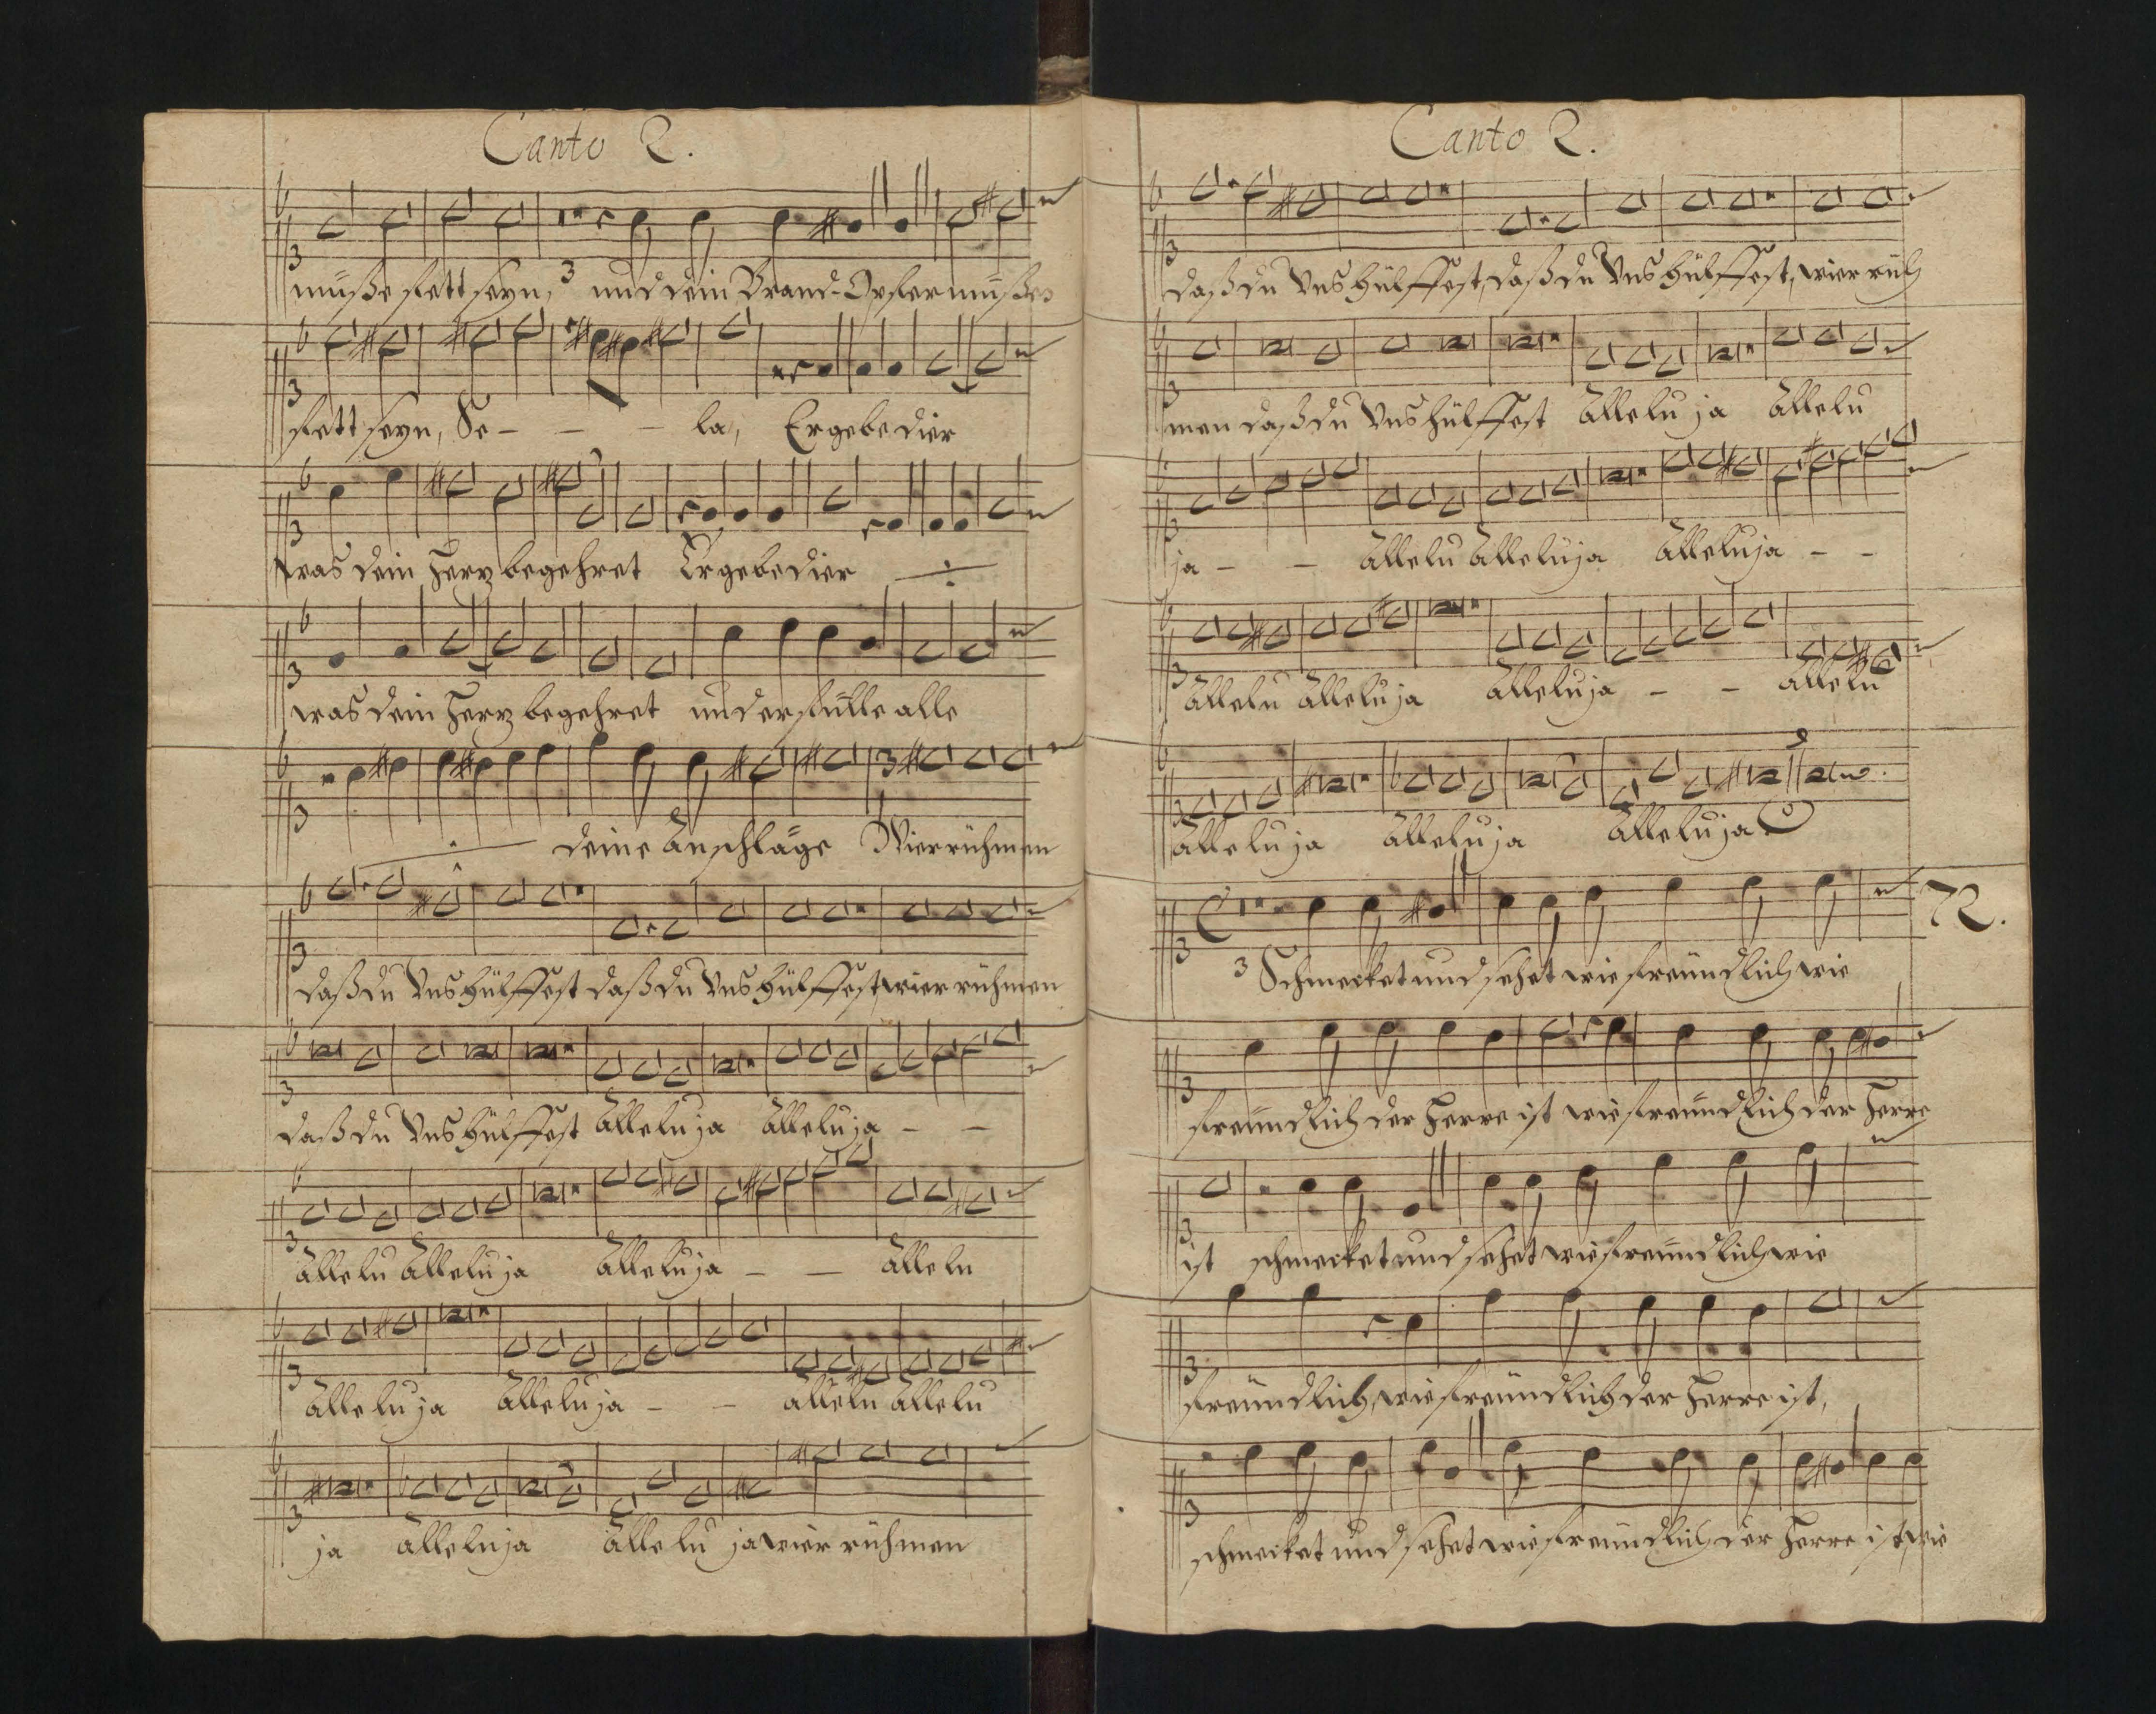 Canto 2.
müße fett seyn, 3 und dein Brand-Opfer müße
fett seyn, Se - - - la, Er gebe dier
was dein Herz begehret Er gebe dier
was dein Herz begehret und erfülle alle
deine Anschläge Wier rühmen
daß du Uns hülffest daß du Uns hülffest, wier rühmen
daß du Uns hülffest Alleluja Alleluja - -
Allelu Alleluja Alleluja - - Allelu
Alleluja Alleluja - - Allelu Allelu
ja Alleluja Allelu ja wier rühmen
Canto 2.
daß du Uns hülffest, daß du Uns hülffest, wier rüh
men daß du Uns hülffest Alleluja Allelu
ja - - Allelu Alleluja Alleluja - -
Allelu Alleluja Alleluja - - Allelu
Alleluja Alleluja Alleluja
72.
3 Schmecket und sehet wie freündlich wie
freündlich der Herre ist wie freündlich der Herre
ist schmecket und sehet wie freündlich wie
freündlich, wie freündlich der Herre ist,
schmecket und sehet wie freündlich der Herre ist, wie